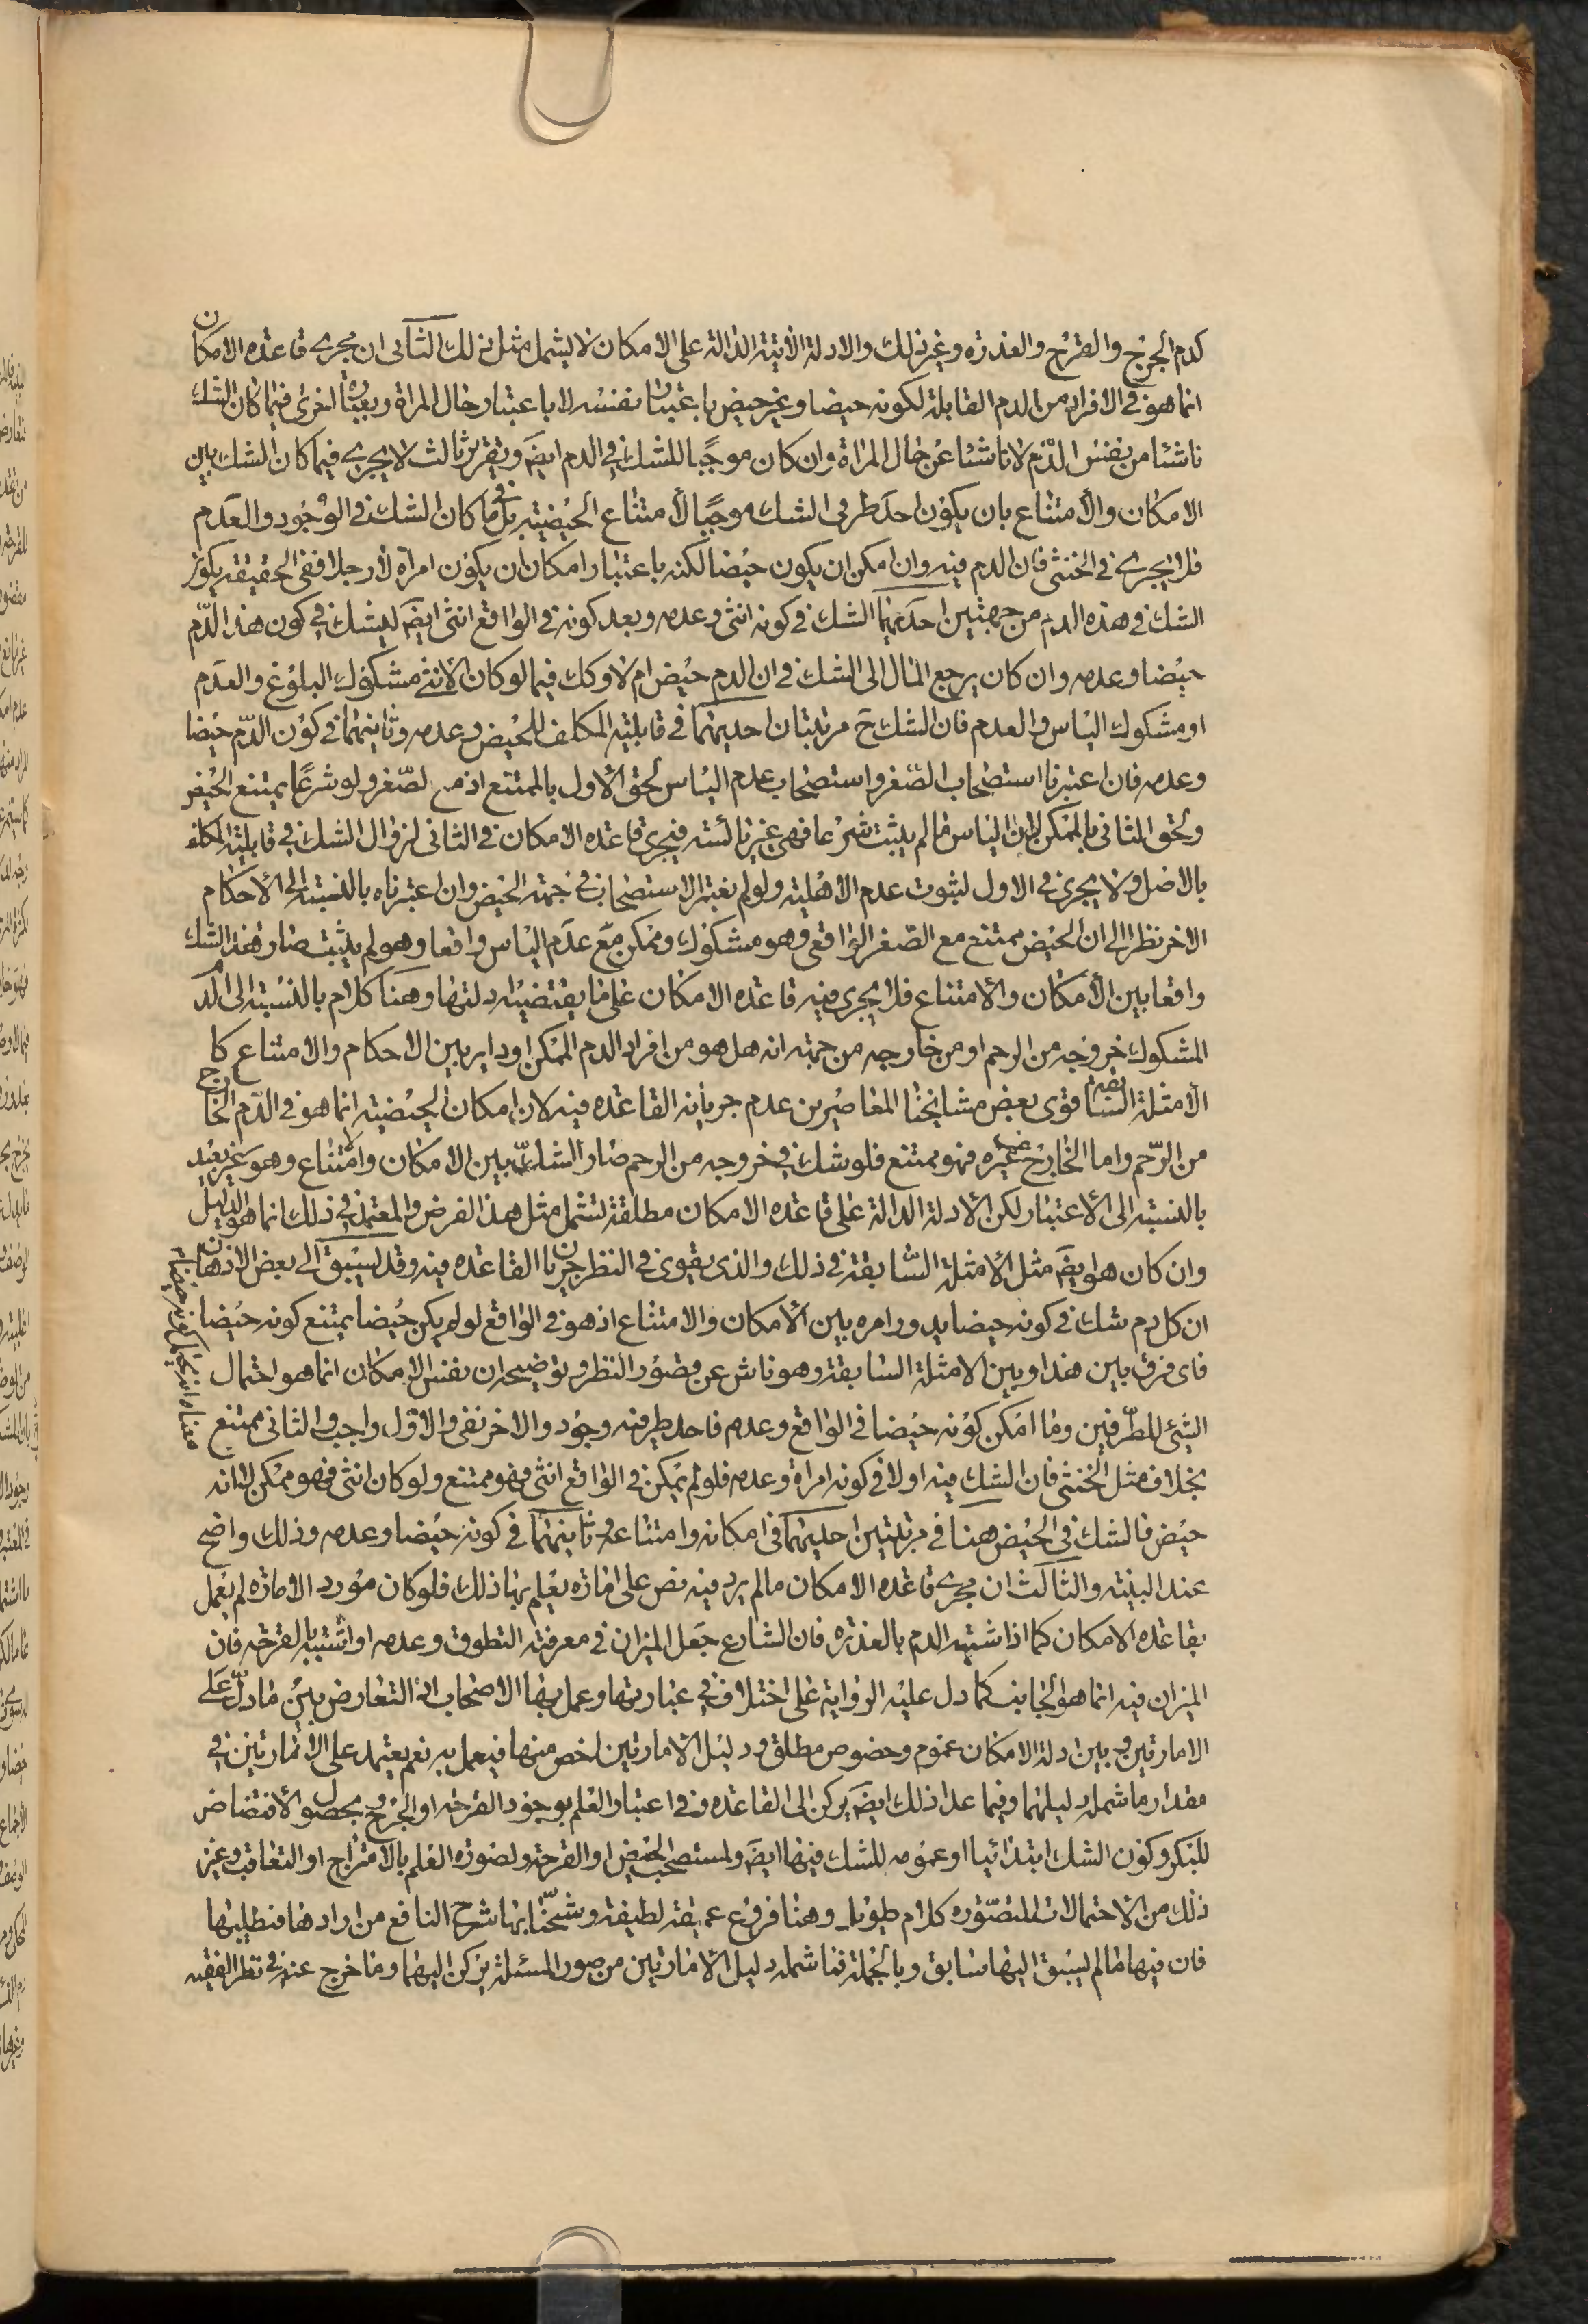 كدم الجرح والقرح والعذرة وغير ذلك والادلة الاتية الدالة على الامكان لا يشمل مثل ذلك الثانى ان مجرى قاعدة الامكان
انما هو فى الافراد من الدم القابلة لكونه حيضا وغير حيض باعتبار نفسه لا باعتبار حال المراة وبعبارة اخرى فيما كان الشك
ناشئا من نفس الدم لا ناشئا عن حال المراة وان كان موجبا للشك فى الدم ايضَ وبتقرير ثالث لا يجرى فيما كان الشك بين
الامكان والامتناع بان يكون احد طرفى الشك موجبا لامتناع الحيضية بل فيما كان الشك فى الوجود والعدم
فلا يجرى فى الخنثى فان الدم فيه وان امكن ان يكون حيضا لكنه باعتبار امكان ان يكون امراة لا رجلا ففى الحقيقة يكون
الشك فى هذه الدم من جهتين احديهما الشك فى كونه انثى وعدمه وبعد كونه فى الواقع انثى ايضَ ليشك فى كون هذا الدّم
حيضا وعدمه وان كان يرجع المال الى الشك فى ان الدم حيض ام لا وكك فيما لو كان الانثى مشكوك البلوغ والعدم
او مشكوك الياس والعدم فان الشك حَ مرتبتان احديهما فى قابلية المكلف للحيض وعدمه وثانيتهما فى كون الدّم حيضا
وعدمه فان اعتبرنا استصحاب الصّغر واستصحاب عدم الياس لحق الاول بالممتنع اذ مع الصّغر ولو شرعًا يمتنع الحيض
ولحق الثانى بالممكن لان الياس مالم يثبت شرعا فهى غير يائسة فيجرى قاعدة الامكان فى الثانى لزوال الشك فى قابلية المكلف
بالاصل ولا يجرى فى الاول لثبوت عدم الاهلية ولو لم نعتبر الاستصحاب فى جهة الحيض وان اعتبرناه بالنسبة الى الاحكام
الاخر نظرا الى ان الحيض ممتنع مع الصّغر الواقعى وهو مشكوك وممكن مع عدم الياس واقعا وهو لم يثبت صار هذا الشك
واقعا بين الامكان والامتناع فلا يجرى فيه قاعدة الامكان على ما يقتضيه ادلتها وهنا كلام بالنسبة الى الدم
المشكوك خروجه من الرحم او من خارجه من جهة انه هل هو من افراد الدم الممكن او داير بين الاحكام والامتناع كا
لامثلة السابقة قوى بعض مشايخنا المعاصرين عدم جريانه القاعدة فيه لان امكان الحيضية انما هو فى الدّم الخارج
من الرّحم واما الخارج عن غيره فهو ممتنع فلو شك فى خروجه من الرحم صار الشك بين الامكان والامتناع وهو غير بعيد
بالنسبة الى الاعتبار لكن الادلة الدالة على قاعدة الامكان مطلقة لتشمل مثل هذا الفرض والمعتمد فى ذلك انما هو الدليل
وان كان هو ايضَ مثل الامثلة السّابقة فى ذلك والذى يقوى فى النظر جريان القاعدة فيه وقد يسبق الى بعض الاذهان
ان كل دم شك فى كونه حيضا يدور امره بين الامكان والامتناع اذ هو فى الواقع لو لم يكن حيضا يمتنع كونه حيضا
فاى فرق بين هذا وبين الامثلة السابقة وهو ناش عن قصور النظر وتوضيحه ان نفس الامكان انما هو احتمال
الشئ للطّرفين وما امكن كونه حيضا فى الواقع وعدم فاحد طرفيه وجود والاخر نفى والاول واجب والثانى ممتنع
بخلاف مثل الخنثى فان الشك فيه اولا فى كونه امراة وعدمه فلو لم يمكن فى الواقع انثى فهو ممتنع ولو كان انثى فهو ممكن لا انه
حيض فالشك فى الحيض هنا فى مرتبتين احديهما فى امكانه وامتناعه وثانيتهما فى كونه حيضا وعدمه وذلك واضح
عند البنية والثالث ان مجرى قاعدة الامكان مالم يرد فيه نص على امارة يعلم بها ذلك فلو كان مورد الامارة لم يعمل
بقاعدة الامكان كما اذا شتبه الدم بالعذرة فان الشارع جعل الميزان فى معرفته التطوق وعدمه او اشتبه بالقرحة فان
الميزان فيه انما هو الجانب كما دل عليه الرواية على اختلاف فى عبارتها وعمل بها الاصحاب اذ التعارض بين ما دلّ على
الامارتين وبين ادلة الامكان عموم وخصوص مطلق ودليل الامارتين اخص منها فيعمل به نعم يعتمد على الامارتين فى
مقدار ما شمله دليلهما وفيما عدا ذلك ايضَ يركن الى القاعدة وفى اعتبار العلم بوجود القرحة او الجرح وبحصول الافتضاض
للبكر وكون الشك ابتدائيا او عمومه للشك فيها ايضَ ولمستصحب الحيض او القرحة ولصورة العلم بالامتزاج او التعاقب وغير
ذلك من الاحتمالات المتصّورة كلام طويل وهنا فروع عميقة لطيفة وشّحنا بها شرح النافع من ارادها فليطلبها
فان فيها مالم يسبق اليها سابق وبالجملة فما شمله دليل الامارتين من صور المسئلة يركن اليهما وما خرج عنه فى نظر الفقيه